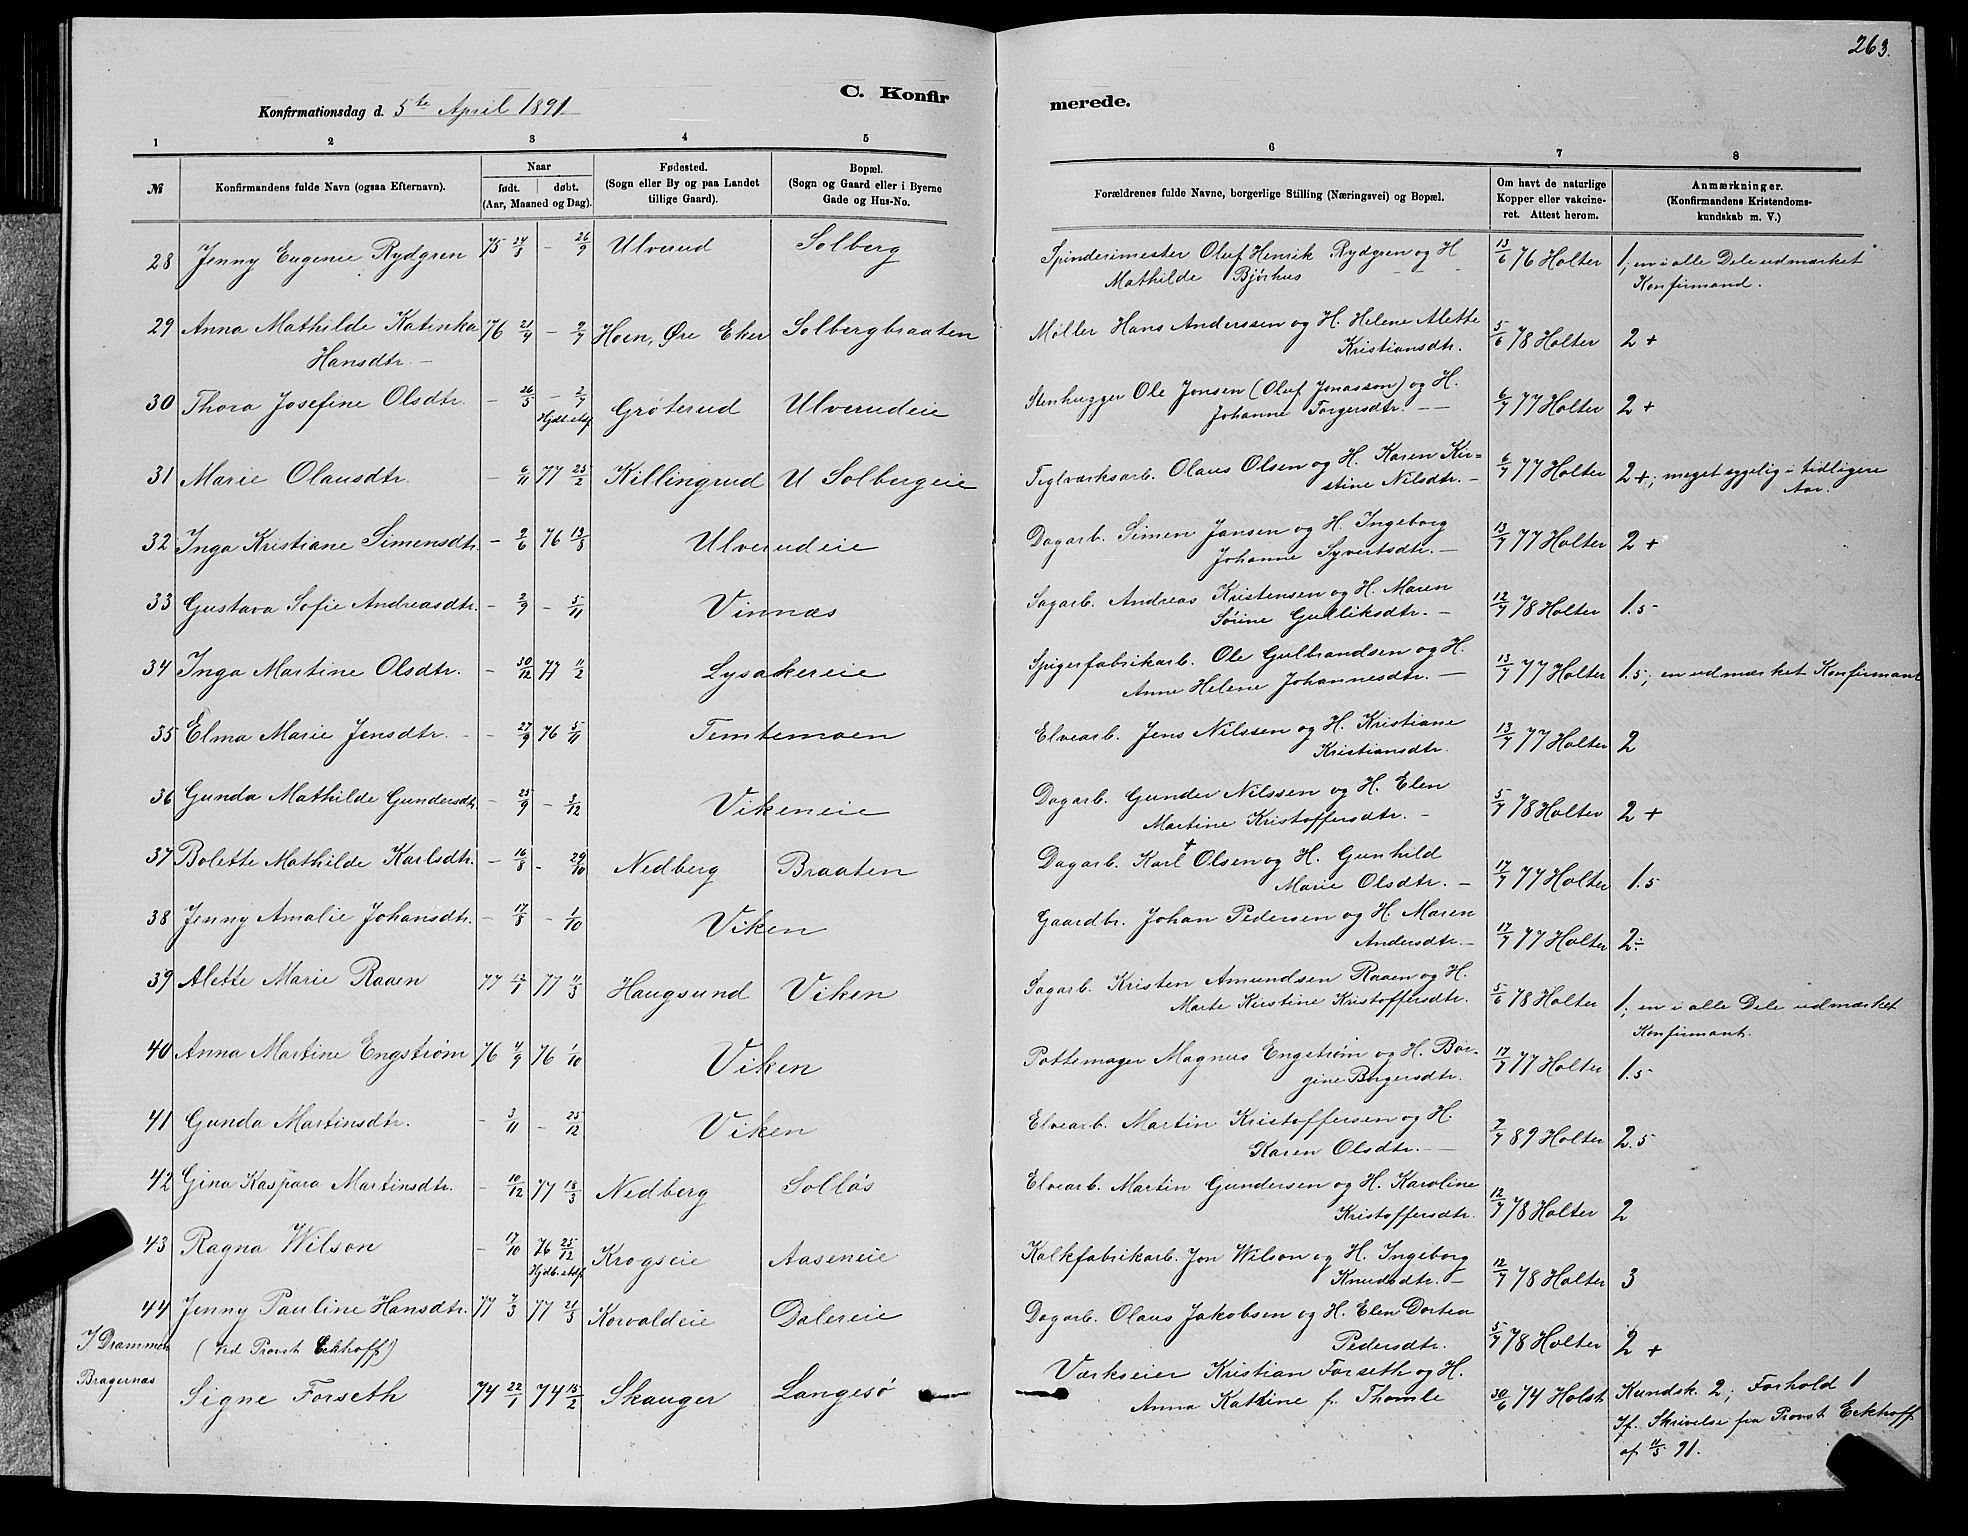 263.
C. Konfir
merede.
Konfirmationsdag d. 5te April 1891.
1 2 3 4 5 6 7 8
№ Konfirmandens fulde Navn (ogsaa Efternavn).
Naar
født. døbt.
(Aar, Maaned og Dag).
Fødested.
(Sogn eller By og paa Landet
tillige Gaard).
Bopæl.
(Sogn og Gaard eller i Byerne
Gade og Hus-No.
Forældrenes fulde Navne, borgerlige Stilling (Næringsvei) og Bopæl.
Om havt de naturlige
Kopper eller vakcine-
ret. Attest herom.
Anmærkninger.
(Konfirmandens Kristendoms-
kundskab m. V.)
28 Jenny Eugenie Rydgren 75 24/8 – 26/9 Ulverud Solberg Spinderimester Oluf Henrik Rydgren og H 13/6 76 Holter 1; en i alle Dele udmærket
Mathilde Bjørhus – – Konfirmand.
29 Anna Mathilde Katinka 76 21/4 – 9/7 Hoen, Øre Eker Solbergbraaten Møller Hans Anderssen og H. Helene Alette 5/6 78 Holter 2 +
Hansdtr. – Kristiansdtr.
30 Thora Josefine Olsdtr. – 26/5 – 2/7 Grøterud Ulverudeie Stenhugger Ole Jonsen (Oluf Jonasson) og H. 6/7 77 Holter 2 +
Hjdb. stdf. Johanne Torgersdtr. – –
31 Marie Olausdtr. – 6/11 77 25/2 Killingrud U Solbergeie Teglværksarb. Olaus Olsen og H. Karen Kir= 6/7 77 Holter 2 +; meget sygelig i tidligere
stine Nilsdtr. – Aar.
32 Inga Kristiane Simensdtr. – 2/6 76 13/8 Ulverudeie Dagarb. Simen Jansen og H. Ingeborg 13/7 77 Holter 2 +
Johanne Syvertsdtr. –
33 Gustava Sofie Andreasdtr. – 2/9 – 5/11 Vinnæs Sagarb. Andreas Kristensen og H. Maren 12/7 78 Holter 1.5
Sørine Gulliksdtr. –
34 Inga Martine Olsdtr. – 30/12 77 11/2 Lysakereie Spigerfabrikarb. Ole Gulbrandsen og H. 13/7 77 Holter 1.5; en udmærket Konfirmant
Anne Helene Johannesdtr. –
35 Elma Marie Jensdtr. – – 27/9 76 5/11 Temtemoen Elvearb. Jens Nilssen og H. Kristiane 13/7 77 Holter 2
Kristiansdtr.
36 Gunda Mathilde Gundersdtr. – 25/9 – 3/12 Vikeneie Dagarb. Gunder Nilssen og H. Elen 5/7 78 Holter 2 +
Martine Kristoffersdtr. –
37 Bolette Mathilde Karlsdtr. – 16/8 – 29/10 Nedberg Braaten Dagarb. Karl + Olsen og H. Gunhild 17/7 77 Holter 1.5
Marie Olsdtr. –
38 Jenny Amalie Johansdtr. – 17/8 – 1/10 Viken Gaardbr. Johan Pedersen og H. Maren 17/7 77 Holter 2 ÷
Andersdtr. –
39 Alette Marie Raaen 77 12/1 77 11/3 Haugsund Viken Sagarb. Kristen Amundsen Raaen og H. 5/6 78 Holter 1; en i alle Dele udmærket
Marte Kirstine Kristoffersdtr. Konfirmant.
40 Anna Martine Engstrøm 76 4/9 76 1/10 Viken Pottemager Magnus Engstrøm og H. Bor= 17/7 77 Holter 1.5
gine Birgersdtr.
41 Gunda Martinsdtr. – 3/11 – 25/12 Viken Elvearb. Martin Kristoffersen og H. 7/7 89 Holter 2.5
Karen Olsdtr. – –
42 Gina Kaspara Martinsdtr. – 10/12 77 18/3 Nedberg Solløs Elvearb. Martin Gundersen og H. Karoline 12/7 78 Holter 2
Kristoffersdtr.
43 Ragna Wilson – 17/10 76 25/12 Krogseie Aaseneie Kalkfabrikarb. Jon Wilson og H. Ingeborg 12/7 78 Holter 3
Hjdb. stdf. Knudsdtr. –
44 Jenny Pauline Hansdtr. 77 7/3 77 21/5 Korvaldeie Dalereie Dagarb. Olaus Jakobsen og H. Elen Dortea 5/7 78 Holter 2 +
Pedersdtr.
I Drammen (ved Provst Eckhoff)
Bragernæs Signe Forseth 74 22/1 74 15/2 Skauger Langesø Værkseier Kristian Forseth og H. 30/6 74 Holst Kundsk. 2; Forhold 1
Anna Katrine f. Thomle If. Skrivelse fra Provst Eckhoff
af 11/5 91.